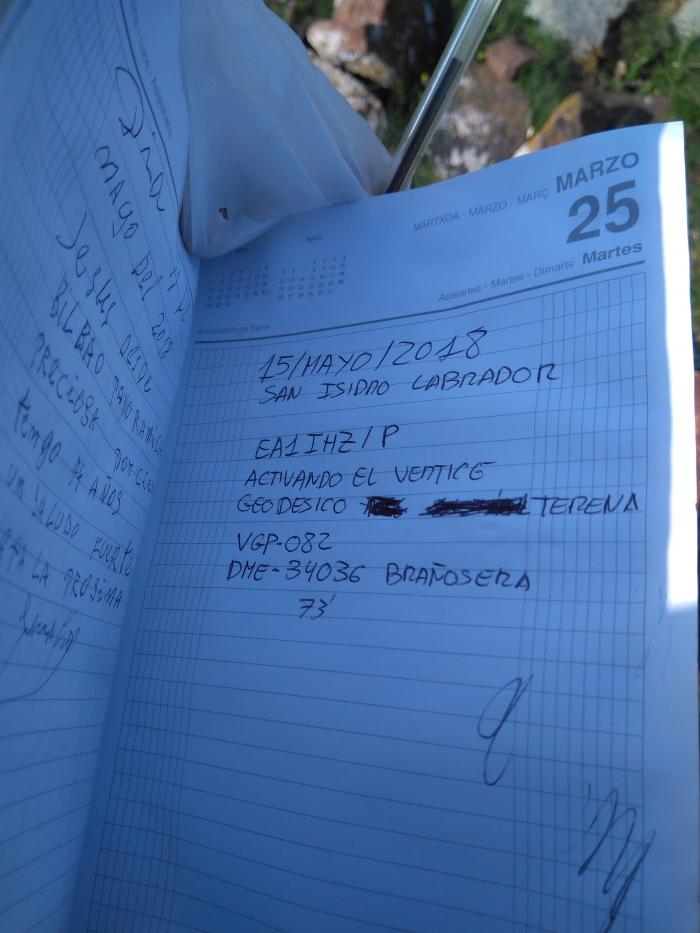 Dia 17
mayo del 2018
Jesus desde
BILBAO PANORAMICA
preciosa por cier
tengo 74 AÑOS
UN SALUDO fuerte
LA PROSIMA
MARTXOA - MARZO - MARÇ MARZO
25
Asteartea - Martes - Dimarts Martes
MAYO
Anunciación de Señor
15/MAYO/2018
SAN ISIDRO LABRADOR
EA1IHZ/P
ACTIVANDO EL VERTICE
GEODESICO TERENA
VGP-082
DME-34036 BRAÑOSERA
73'